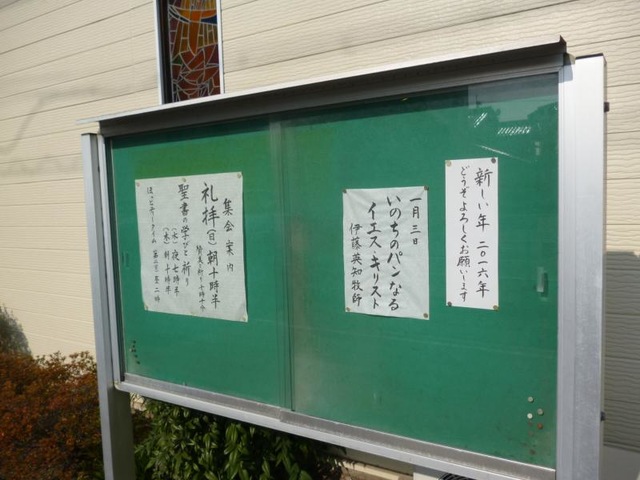 新しい年 二〇一六年
どうぞよろしくお願いします
一月三日
いのちのパンなる
イエス・キリスト
伊藤英知牧師
集会案内
礼拝(日)朝十時半
聖書の学びと祈り
(水)夜七時半
(木)朝十時半